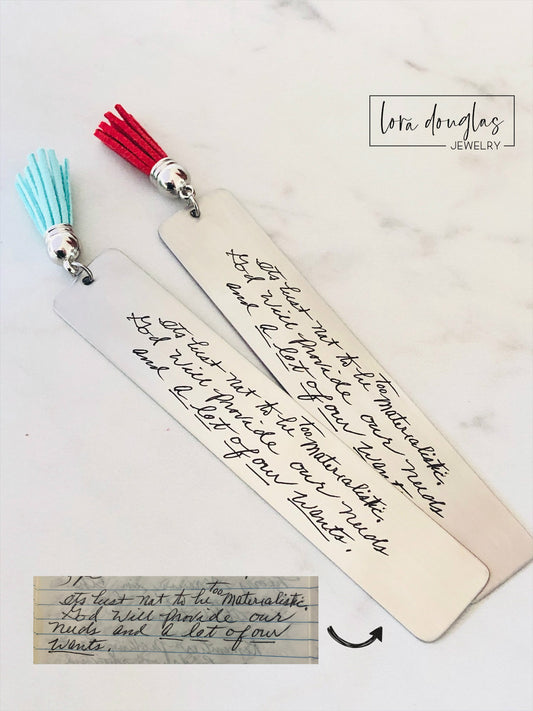 lora douglas
JEWELRY
Its best not to be too materialistic.
God Will provide our needs
and a lot of our Want
Its best not to be too materialistic.
God Will provide our needs
and a lot of our Wants.
Its best not to be too Materialistic.
God Will provide our
needs and a lot of our
Wants.